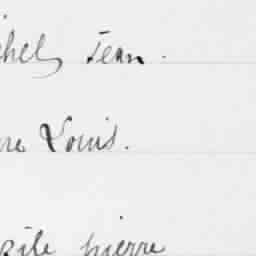 chel Jean.
re Louis.
pierre